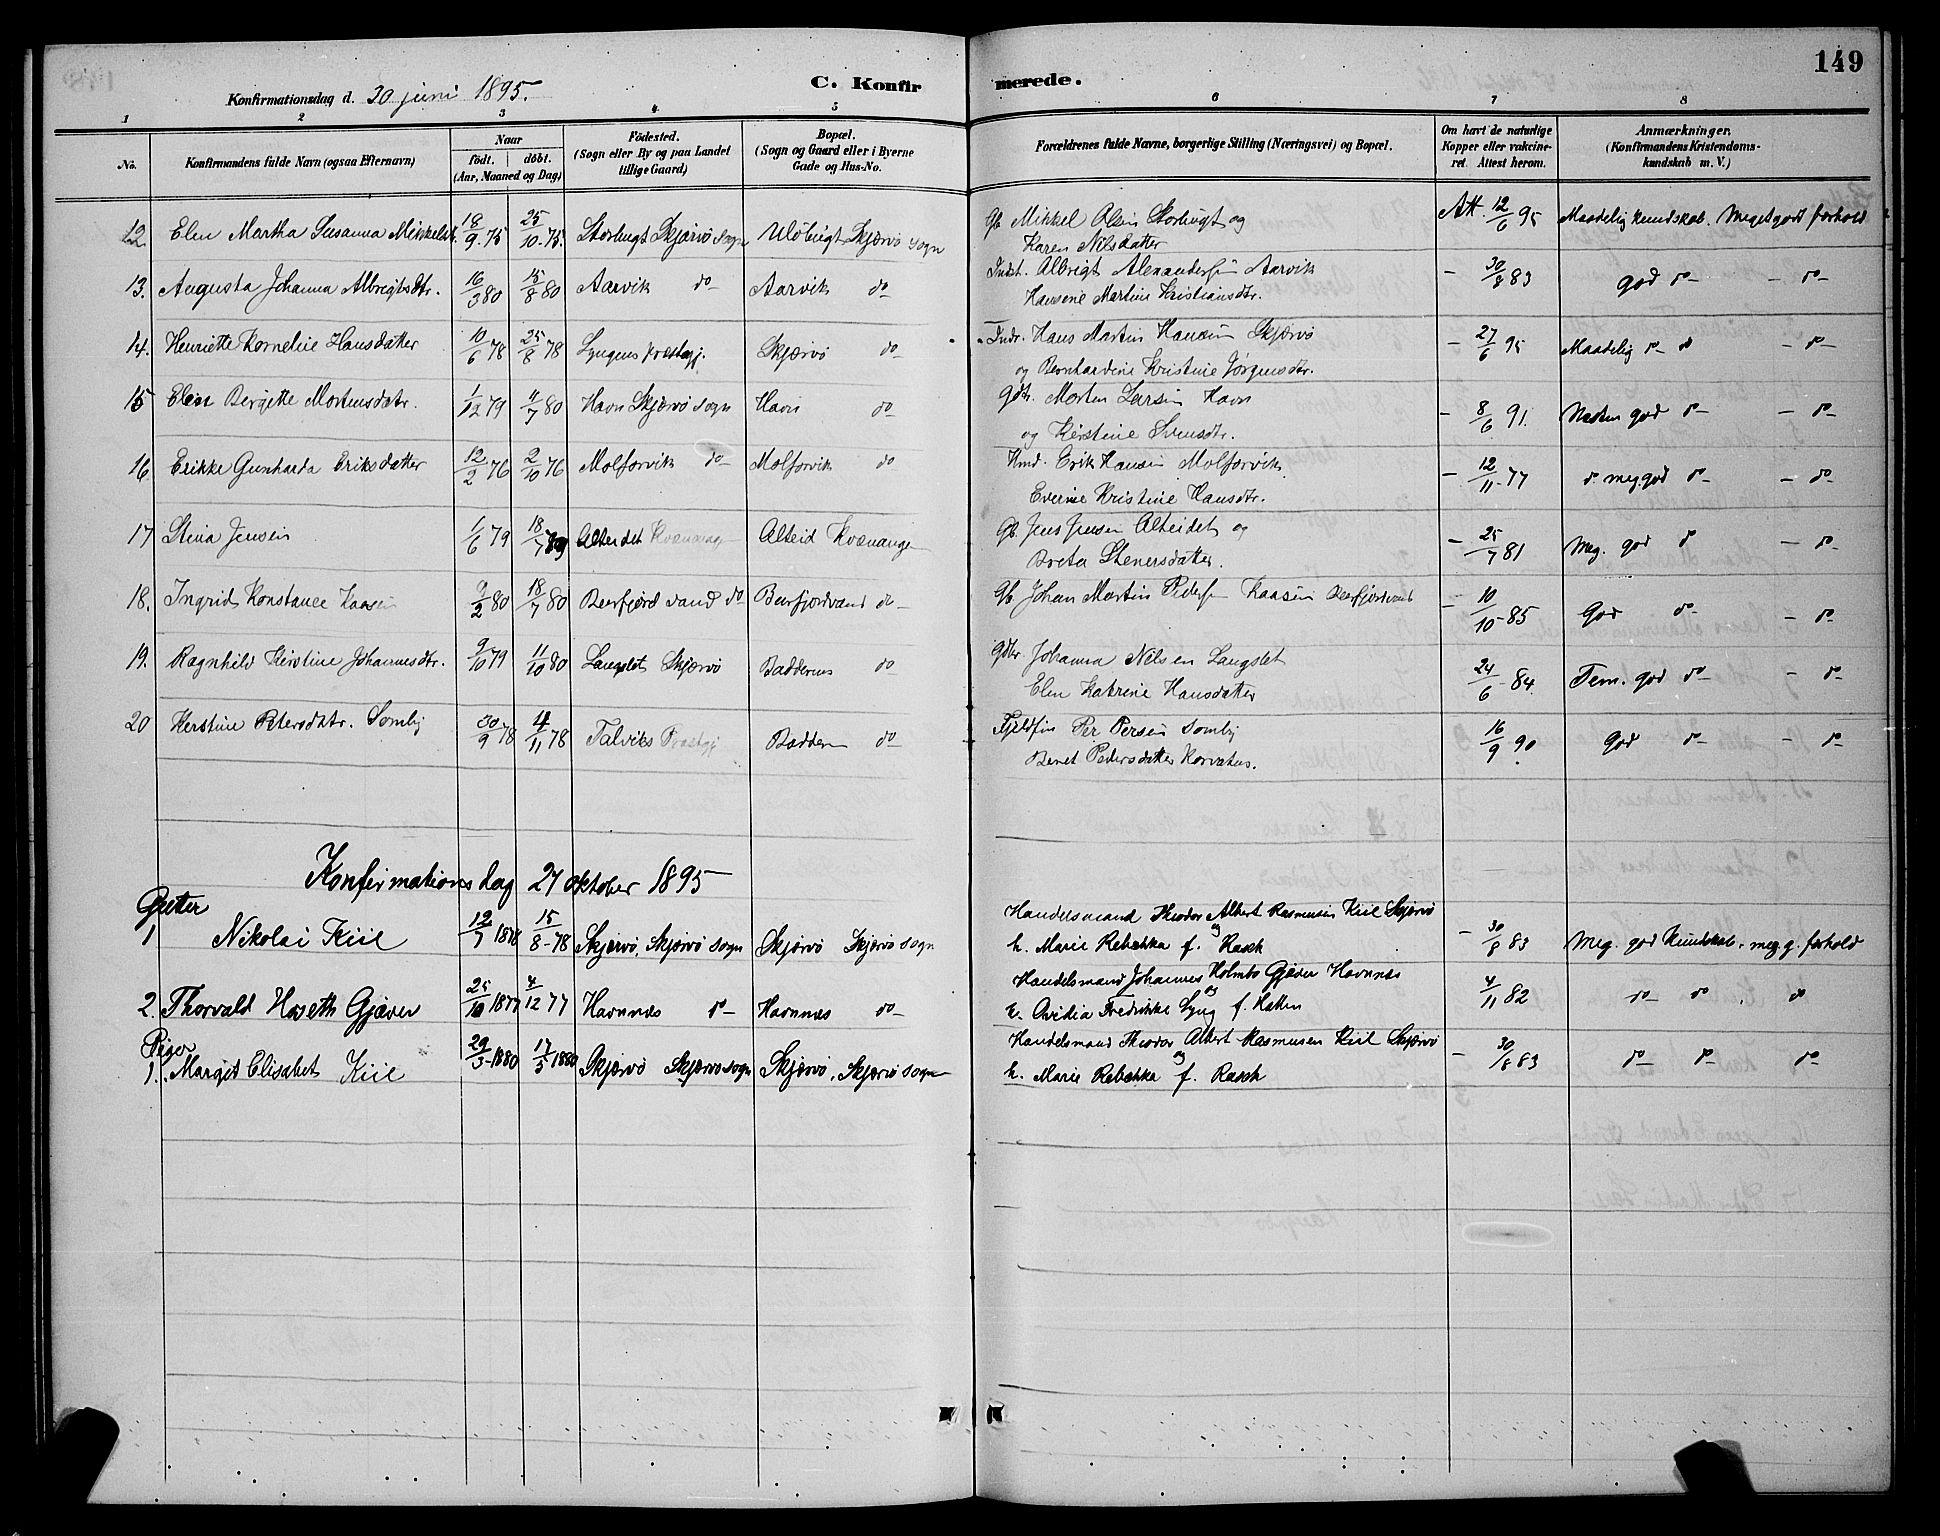 149
Konfirmationsdag d. 30 juni 1895.
C. Konfirmerede.
1 2 3 4 5 6 7 8
No.
Konfirmandens fulde Navn (ogsaa Efternavn)
Naar
født. døbt.
(Aar, Maaned og Dag)
Födested.
(Sogn eller By og paa Landet
tillige Gaard)
Bopæl.
(Sogn og Gaard eller i Byerne
Gade og Hus-No.
Forældrenes fulde Navne, borgerlige Stilling (Næringsvei) og Bopæl.
Om havt de naturlige
Kopper eller vakcine-
ret. Attest herom.
Anmærkninger.
(Konfirmandens Kristendoms-
kundskab m. V.)
12. Elen Martha Susanna Mikkelsdt. 18/9-75 25/10-75 Storbugt Skjærvö Sogn Ulöbugt Skjærvö Sogn Gb. Mikkel Olsen Storbugt og Att. 12/6 95 Maadelig kundskab. Meget godt forhold
Karen Nilsdatter
13. Augusta Johanna Albrigtsdtr. 16/3 80 15/8 80 Aarvik do Aarvik do Indst. Albrigt Alexandersen Aarvik - 30/8 83 god do - do
Hansene Martine Kristiansdtr.
14. Henriette Kornelie Hansdatter 10/6 78 25/8 78 Lyngens præstegj. Skjærvö do Indr. Hans Martin Hansen Skjærvö - 27/6 95 Maadelig do - do
og Bernhardine Kristine Jörgensdtr.
15 Elen Bergette Mortensdatr. 1/12 79 11/7 80 Havn Skjærvö Sogn Havn do Gdb. Morten Larsen Havn - 8/6 91. Næsten god do - do
og Kirstine Svensdtr.
16 Erikke Gunharda Eriksdatter 12/2 76 2/10 76 Molforvik do Molforvik do Hmd. Erik Hansen Molforvik - 12/11-77 do meg. god do - do
Everine Kristine Hansdtr.
17 Stina Jensen 1/6 79 18/7 Alteidet Kvænang Alteid Kvænangen Gb. Jens Jensen Alteidet og - 25/7 81 Meg. god do - do
Breta Stenersdatter.
18. Ingrid Konstance Kaasen 9/2 80 18/7 80 Burfjord vand do Burfjordvand do Gb. Johan Martin Peders. Kaasen Burfjordvand - 10/10-85 God do - do
19. Ragnhild Kirstine Johannesdtr. 9/10 79 11/10 80 Langslet Skjærvö Badderen do Gdbr. Johanna Nilsen Langslet 24/6-84. Tem. god do - do
Elen Katrine Hansdatter
20 Kerstine Petersdatr. Somby 30/9 78 4/11 78 Talviks Præstgj Badderen do Fjeldfin Per Persen Somby 16/9 90 God do - do
Beret Pedersdatter Korvatus.
Konfirmationsdag 27 oktober 1895
Gutter
1 Nikolai Kiil 12/7 1878 15/8-78 Skjærvö, Skjærvö Sogn Skjærvö Skjærvö Sogn Handelsmand Theodor Albert Rasmusen Kiil Skjærvö - 30/8 83 Meg. god Kundskab, meg. g. forhold
og
h. Marie Rebekka f. Rasch
2. Thorvald Hoseth Gjæver 25/10 1877 4/12 77 Havnnæs do Havnnæs do Handelsmand Johannes Holmbo Gjæver Havnnæs 4/11 82 do do do
og
h. Ovidia Fredrikke Lyng f. Hatten
Piger
1. Margit Elisabet Kiil 29/3-1880 17/5 1880 Skjærvö Skjærvö Sogn Skjærvö, Skjærvö Sogn Handelsmand Theodor Albert Rasmusen Kiil Skjærvö - 30/8 83 do do do
og
h. Marie Rebekka f. Rasch